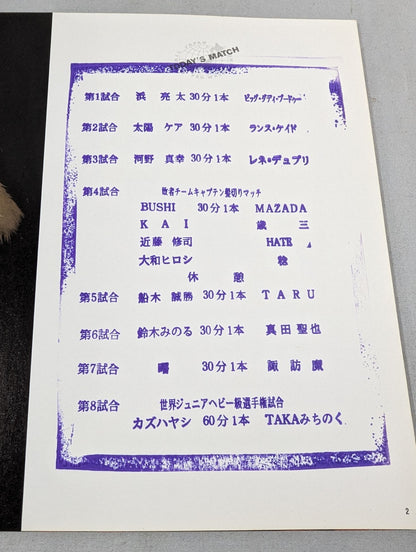 TODAY'S MATCH
第1試合 浜 亮太 30分1本 ビッグ・ダディ・ブードゥー
第2試合 太陽 ケア 30分1本 ランス・ケイド
第3試合 河野 真幸 30分1本 レネ・デュプリ
第4試合 敗者チームキャプテン髪切りマッチ
BUSHI 30分1本 MAZADA
KAI 歳三
近藤 修司 HATE
大和ヒロシ 稔
休憩
第5試合 船木 誠勝 30分1本 TARU
第6試合 鈴木みのる 30分1本 真田 聖也
第7試合 曙 30分1本 諏訪魔
第8試合 世界ジュニアヘビー級選手権試合
カズハヤシ 60分1本 TAKAみちのく
2